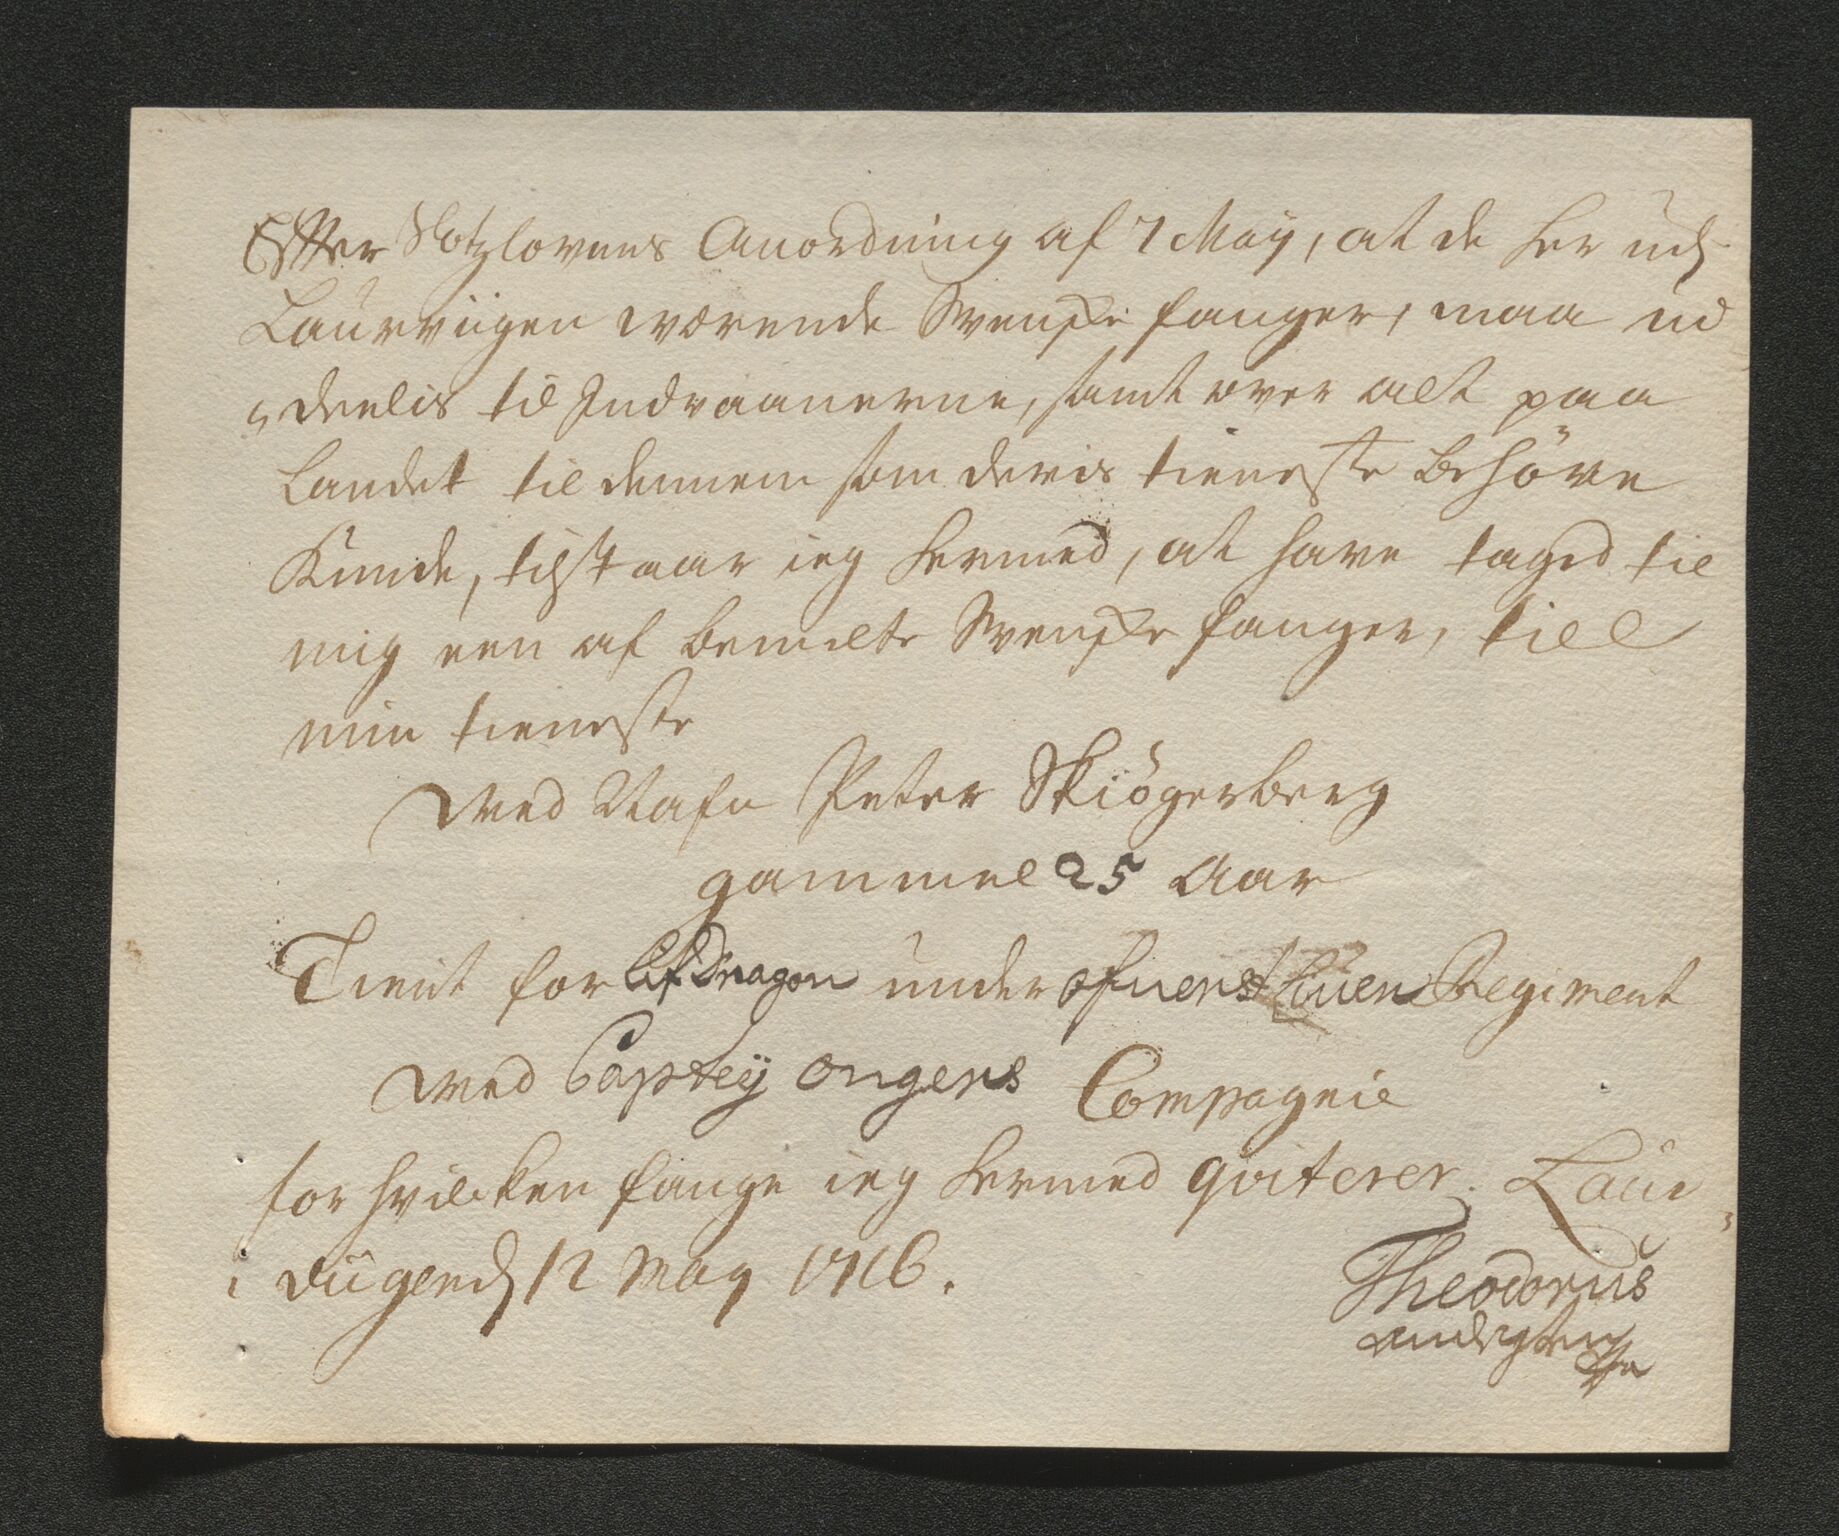 Effter Slotzlovens Anordning af 7 May, at de her udj
Laurviigen værende Svenske fanger, maa ud
deelis til Indvaanerne, samt over alt paa
Landet til dennem som deris tieneste behöve
Kunde, tilstaar ieg hermed, at have taged til
mig een af bemelte Svenske fanger, till
min tieneste
ved Nafn Peter Skiögerberg
gammel 25 Aar
Tient for lifDragon under ofuerst Regiment
ved Captey ongers Compagnie
for hvilcken fange ieg hermed qviterer. Laur
viigen dj 12 May 1716.
Theodorus